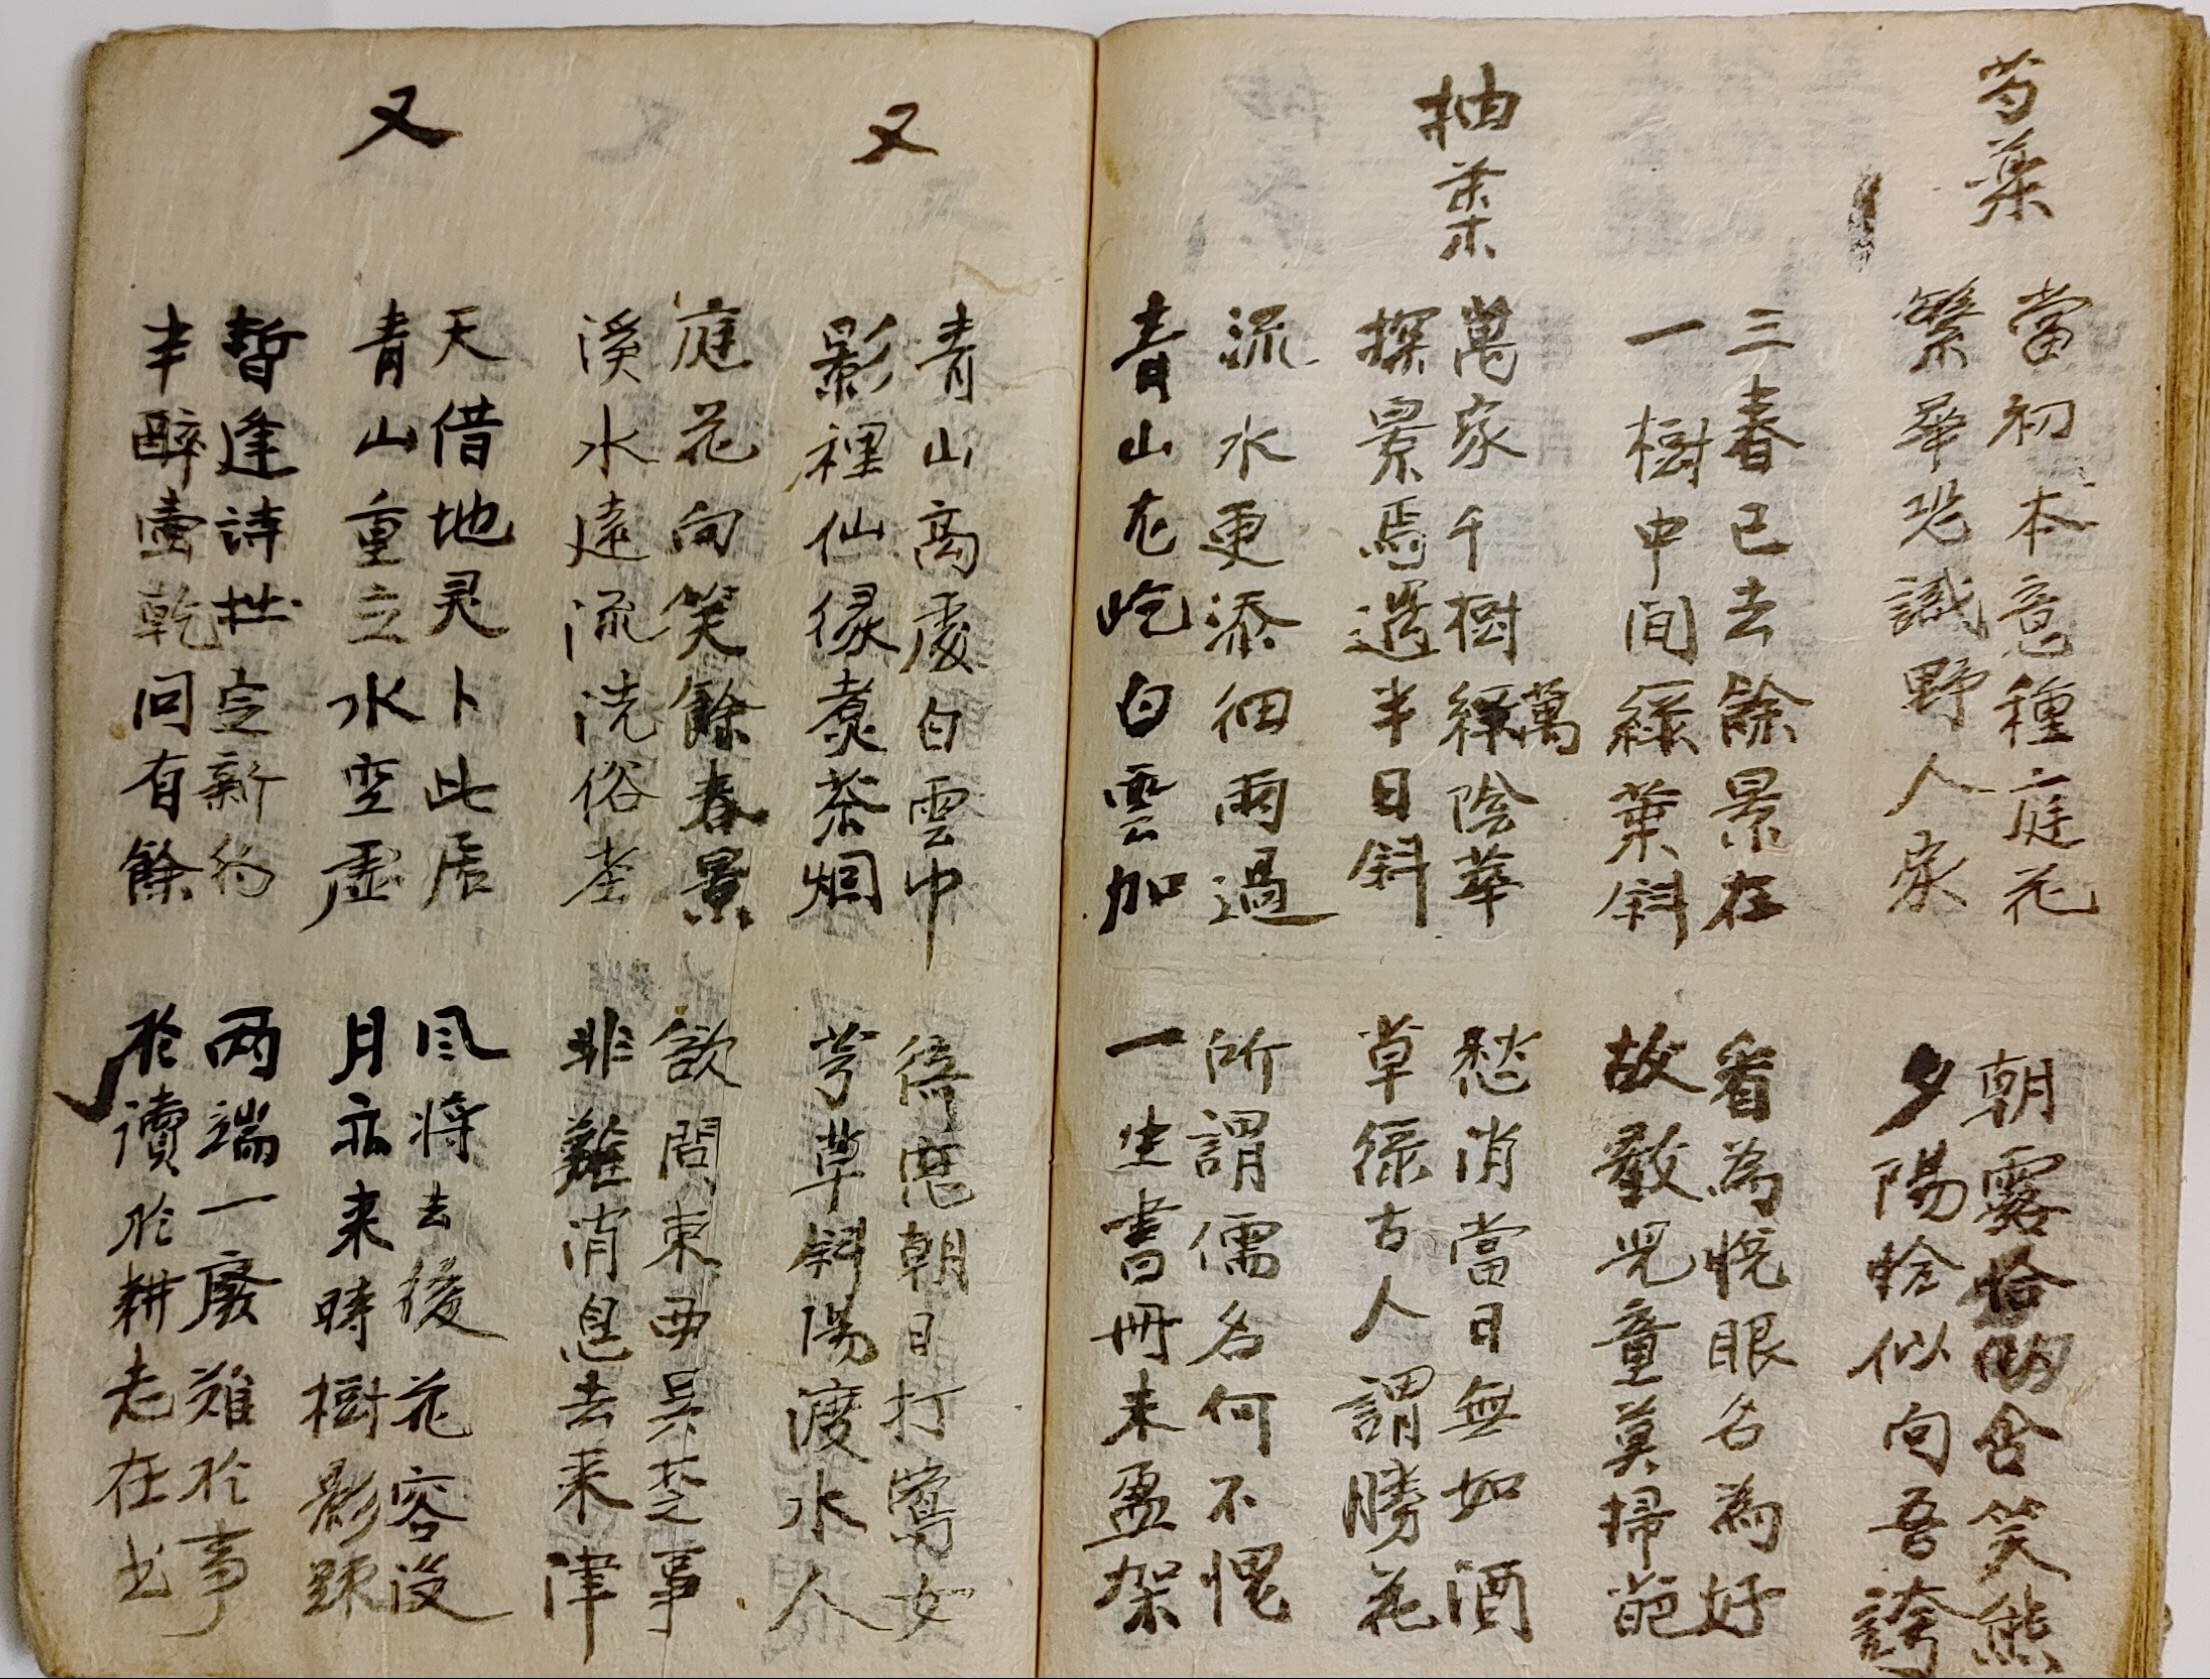 芍藥
當初本意種庭花
朝露恰 含笑態
繁華恐識野人家
夕陽恰似向吾誇
三春已去餘景在
看為悅眼名為好
一樹中間綠葉斜
故敎兒童莫掃葩
抽葉
萬家千樹緑陰華
萬
愁消當日無如酒
探景焉遲半日斜
草緑古人謂勝花
流水更添細雨過
所謂儒名何不愧
青山屹白雲加
一生書冊未盈架
又
青山高處白雲中
朝日打鶯女
影裡仙緣煮茶烟
芳草斜陽渡水人
庭花向笑餘春景
欲問東西吳楚事
溪水遠流洗俗
非難消息去來津
又
天借地灵卜此居
風将去後花容没
青山重立水空虛
月亦来時樹影疎
暫逢詩 定新約
两端一廢难於事
半醉壺乾同有餘
於讀於耕走在